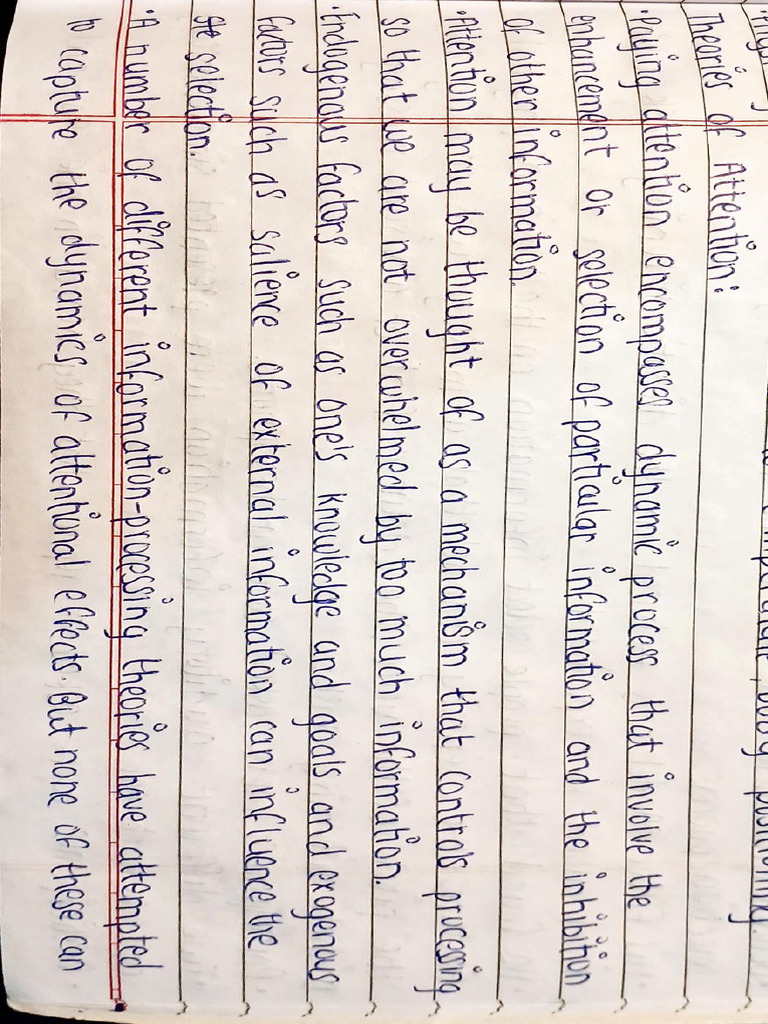 body positioning.
Theories of Attention:
•Paying attention encompasses dynamic process that involve the
enhancement or selection of particular information and the inhibition
of other information.
•Attention may be thought of as a mechanism that controls processing
so that we are not overwhelmed by too much information.
•Endogenous factors such as one's knowledge and goals and exogenous
factors such as salience of external information can influence the
the selection.
•A number of different information-processing theories have attempted
to capture the dynamics of attentional effects. But none of these can